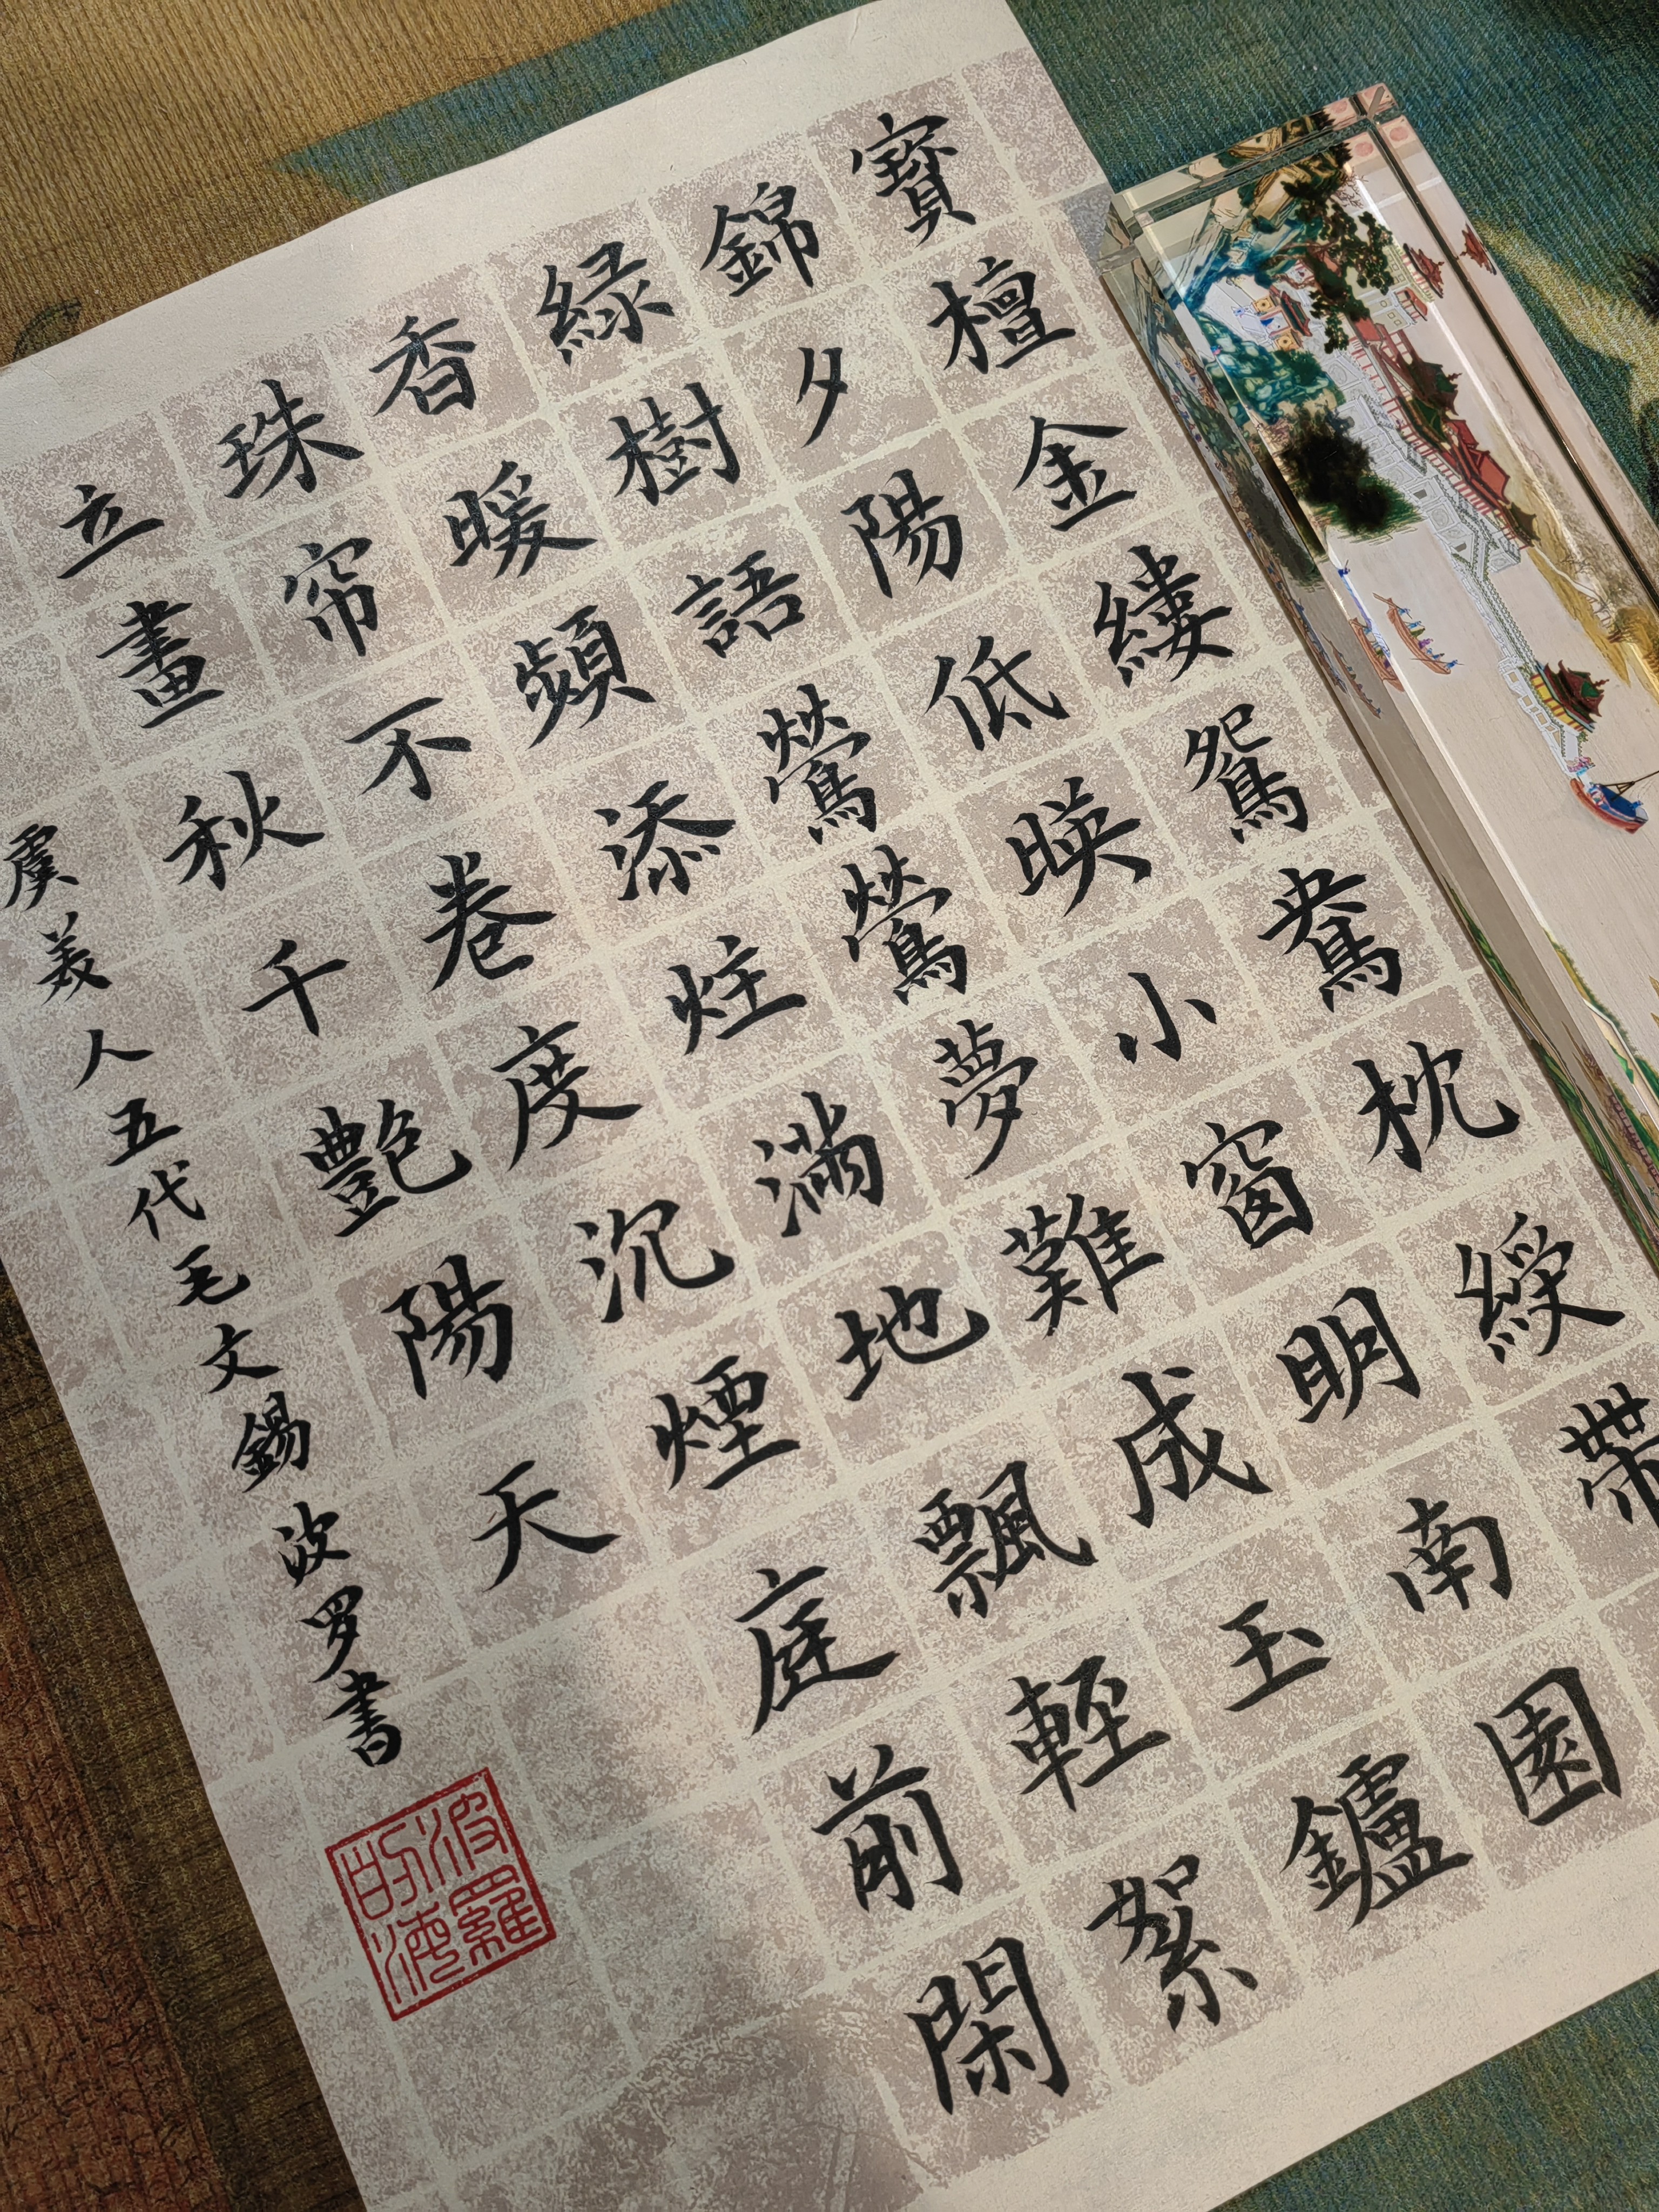 寶檀金縷鴛鴦枕綬帶
錦夕陽低映小窗明南園
緑樹語鶯鶯夢難成玉鑪
香暖頻添炷滿地飄輕絮
珠帘不卷度沉煙庭前閑
立畫秋千艶陽天
虞美人五代毛文錫 波罗書
波羅的海